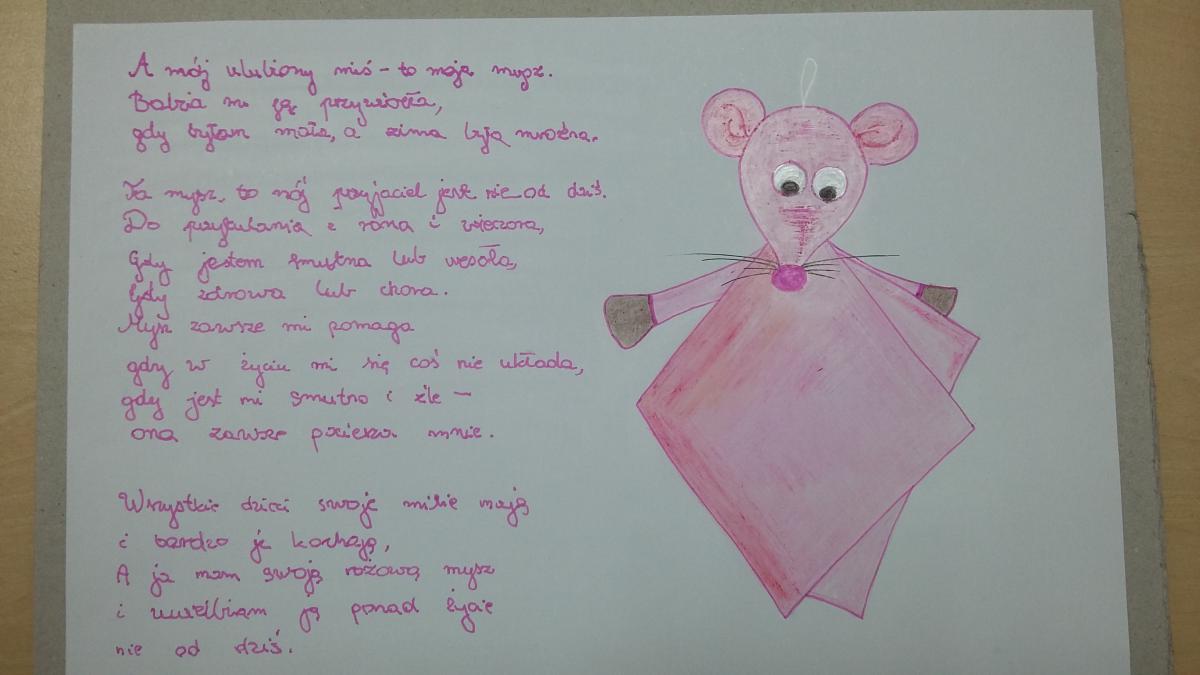 A mój ulubiony miś - to moja mysz.
Babcia mi ją przywiozła,
gdy byłam mała, a zima była mroźna.
Ta mysz, to mój przyjaciel jest nie od dziś.
Do przytulania z rana i wieczora,
Gdy jestem smutna lub wesoła,
Gdy zdrowa lub chora.
Mysz zawsze mi pomaga
gdy w życiu mi się coś nie układa,
gdy jest mi smutno i źle -
ona zawsze pociesza mnie.
Wszystkie dzieci swoje misie mają
i bardzo je kochają,
A ja mam swoją różową mysz
i uwielbiam ją ponad życie
nie od dziś.